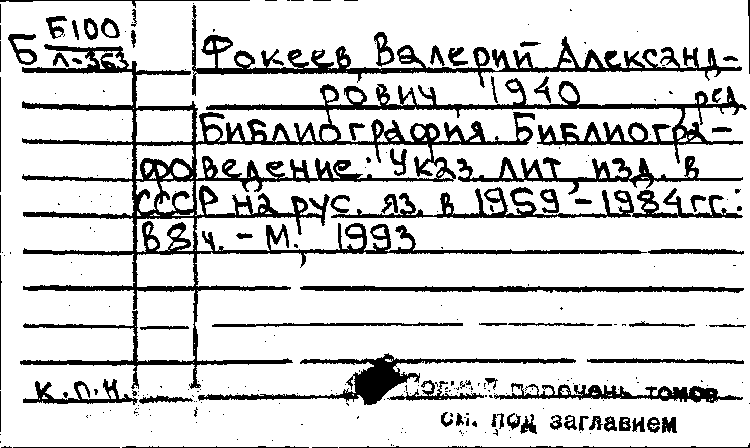 Б Б100
Л-363
Фокеев, Валерий Александ-
рович, 1940 , ред.
Библиография. Библиогра-
фоведение: Указ. лит., изд. в
СССР на рус. яз. в 1959-1984 гг.:
В 8 ч. - М., 1993
к.п.н.
Полный перечень томов
см. под заглавием